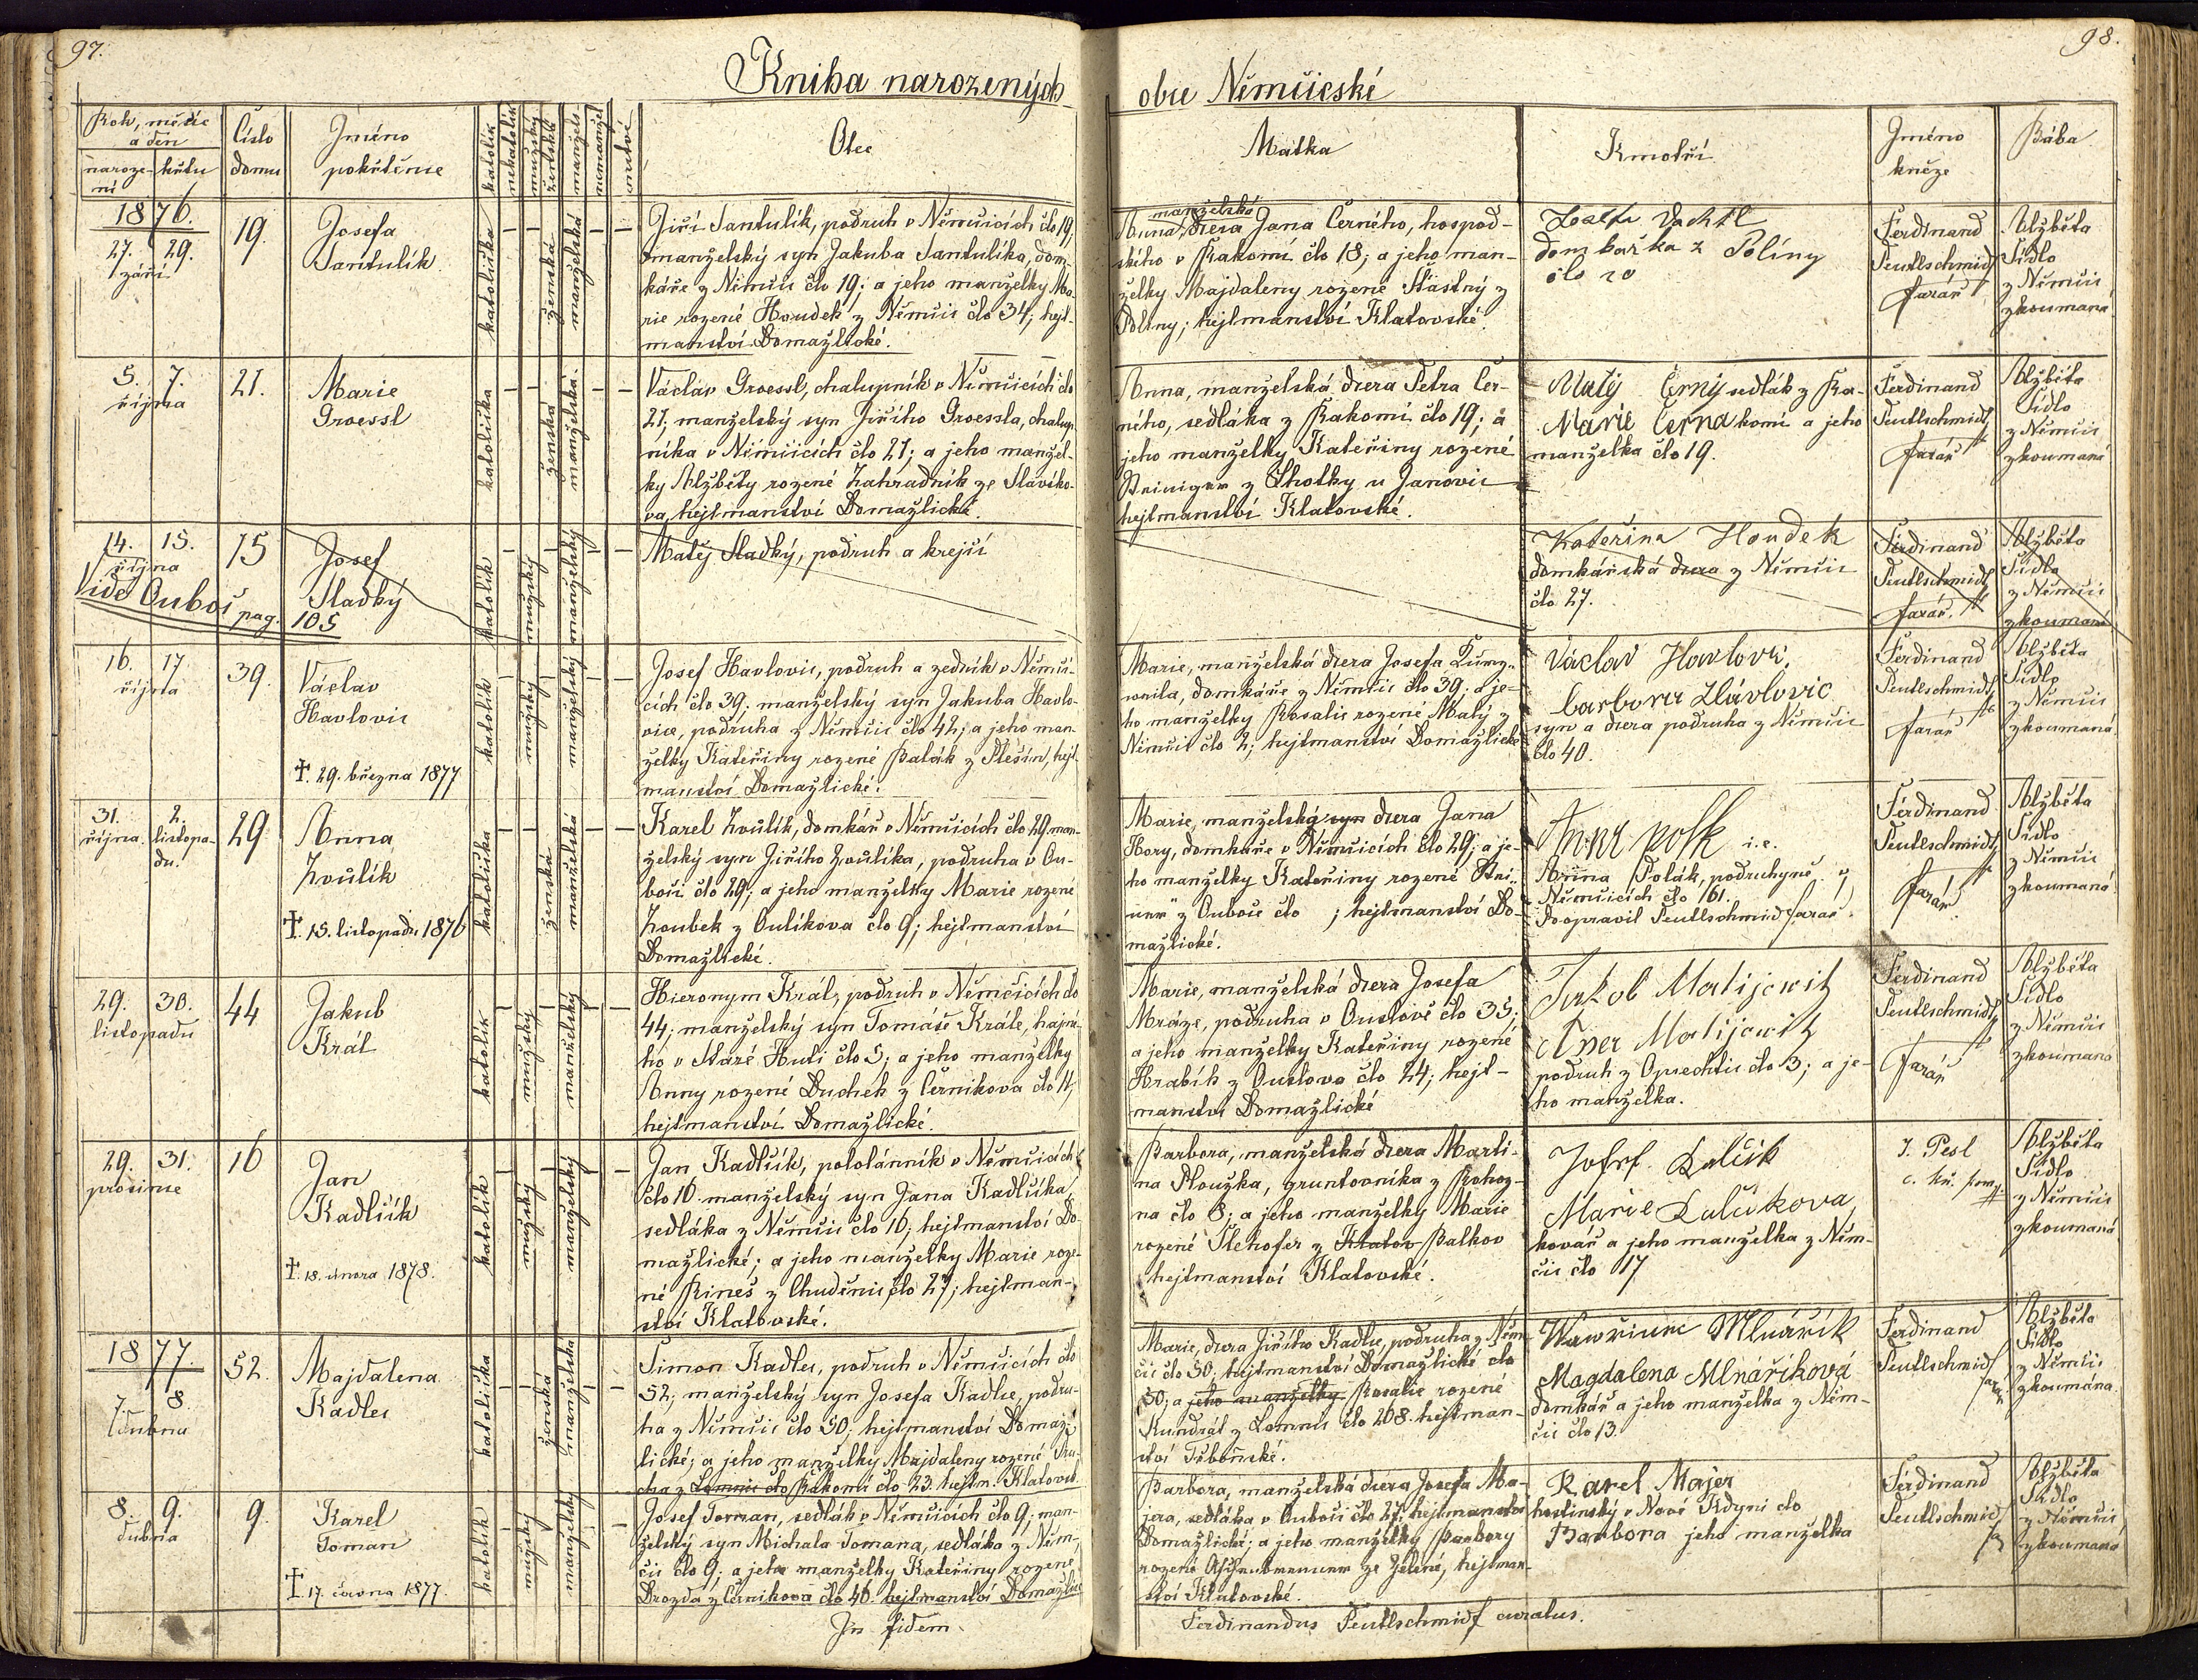 97.
98.
Kniha narozených
obce Němčické
Rok, měsíc
a den
naroze-
ní
křtu
Číslo
domu
Jméno
pokřtěnce
katolík
nekatolík
mužský
ženská
manžels.
nemanžel.
mrtvé
Otec
Matka
Kmotři
Jméno
kněze
Bába
1876.
27. 29.
září
19.
Josefa
Tantulík
katolička
ženská
manželská
Jiří Tantulík, podruh v Němčicích člo 19,
manželský syn Jakuba Tantulíka, dom-
káře z Němčic člo 19; a jeho manželky Ma-
rie rozené Houdek z Němčic člo 34; hejt-
manství Domažlické.
manželská
Anna, dcera Jana Černého, hospod-
ského v Rakomi člo 18; a jeho man-
želky Majdaleny rozené Šťastný z
Poliny; hejtmanství Klatovské.
domkařka z Poliny
člo 20
Ferdinand
Peutlschmidt
farář
Alžběta
Sidlo
z Němčic
zkoumaná
5. 7.
října
21.
Marie
Groessl
katolička
ženská
manželská
Václav Groessl, chalupník v Němčicích člo
21; manželský syn Jiřího Groessla, chalup-
níka v Němčicích člo 21; a jeho manžel-
ky Alžběty rozené Zahradník ze Slavíko-
va, hejtmanství Domažlické.
Anna, manželská dcera Petra Čer-
ného, sedláka z Rakomi člo 19; a
jeho manželky Kateřiny rozené
z Lhotky u Janovic
hejtmanství Klatovské.
Matěj Černý sedlák z Ra-
Marie Černá komi a jeho
manželka člo 19.
Ferdinand
Peutlschmidt
farář
Alžběta
Sidlo
z Němčic
zkoumaná
14. 15.
října
15
Josef
Sladký
Vide Ouboč pag. 105
katolík
mužský
manželský
Matěj Sladký, podruh a krejčí
Kateřina Houdek
domkářská dcera z Němčic
člo 27.
Ferdinand
Peutlschmidt
farář.
Alžběta
Sidlo
z Němčic
zkoumaná
16. 17.
října
39.
Václav
Havlovic
✝. 29. března 1877
katolík
mužský
manželský
Josef Havlovic, podruh a zedník v Němči-
cích člo 39; manželský syn Jakuba Havlo-
vice, podruha z Němčic člo 42; a jeho man-
želky Kateřiny rozené Palák z Člešin, hejt-
manství Domažlické.
Marie, manželská dcera Josefa
domkáře z Němčic člo 39; a je-
ho manželky Rosalie rozené Malý z
Němčic člo 2; hejtmanství Domažlické
Václav Havlovic,
barbora Havlovic
syn a dcera podruha z Němčic
člo 40.
Ferdinand
Peutlschmidt
farář
Alžběta
Sidlo
z Němčic
zkoumaná
31. 2.
října. listopa-
du.
29
Anna
Zvůlík
✝. 15. listopadu 1876
katolička
ženská
manželská
Karel Zvůlík, domkář v Němčicích člo 29, man-
želský syn Jiřího Zvůlíka, podruha v Ou-
boči člo 29; a jeho manželky Marie rozené
Zoubek z Oulíkova člo 9; hejtmanství
Domažlické.
Marie, manželský syn dcera Jana
Hory, domkáře v Němčicích člo 29; a je-
ho manželky Kateřiny rozené
z Ouboče člo ; hejtmanství Do-
mažlické.
Anna polk i. e.
Anna Polák, podruhyně v
Němčicích člo 161.
doopravil Peutlschmidt farář.
Ferdinand
Peutlschmidt
farář
Alžběta
Sidlo
z Němčic
zkoumaná
29. 30.
listopadu
44
Jakub
Král
katolík
mužský
manželský
Hieronym Král, podruh v Němčicích člo
44; manželský syn Tomáše Krále, hajné-
ho v Staré Huti člo 5; a jeho manželky
Anny rozené Duchek z Černikova člo 11,
hejtmanství Domažlické.
Marie, manželská dcera Josefa
Mráze, podruha v Ouslově člo 35;
a jeho manželky Kateřiny rozené
Hrabík z Ouslova člo 24; hejt-
manství Domažlické
Jakob Matijewitz
Matijewitz
podruh z Oprechtic člo 3; a je-
ho manželka.
Ferdinand
Peutlschmidt
farář
Alžběta
Sidlo
z Němčic
zkoumaná
29. 31.
prosince
16
Jan
Kadlčík
✝. 18. února 1878.
katolík
mužský
manželský
Jan Kadlčík, pololánník v Němčicích
člo 16. manželský syn Jana Kadlčíka
sedláka z Němčic člo 16; hejtmanství Do-
mažlické; a jeho manželky Marie roze-
né Rineš z Chuděnic člo 27; hejtman-
ství Klatovské.
Barbora, manželská dcera Marti-
na Ptouzka, gruntovníka z Rohoz-
na člo 8; a jeho manželky Marie
rozené Tlehofer z Klatov Balkov
hejtmanství Klatovské.
Josef Lulčik
Marie Lulčikova,
kovář a jeho manželka z Něm-
čic člo 17
J. Pesl
Alžběta
Sidlo
z Němčic
zkoumaná
1877.
7. 8.
dubna
52.
Majdalena
Kadlec
katolička
ženská
manželská
Šimon Kadlec, podruh v Němčicích člo
52; manželský syn Josefa Kadlce, podru-
ha z Němčic člo 50; hejtmanství Domaž-
lické; a jeho manželky Majdaleny rozené
z Lomnic člo Rakomi člo 23. hejtm. Klatovsk.
Marie, dcera Jiřího Kadlce, podruha z Něm-
čic člo 50; hejtmanství Domažlické člo
50; a jeho manželky Rosalie rozené
Kundrát z Lomnic člo 268. hejtman-
ství Třeboňské.
Wawřinec Mlnářík
Magdalena Mlnáříková
domkář a jeho manželka z Něm-
čic člo 13.
Ferdinand
Peutlschmidt
farář
Alžběta
Sidlo
z Němčic
zkoumána
8. 9.
dubna
9.
Karel
Toman
✝. 17. června 1877.
katolík
mužský
manželský
Josef Toman, sedlák v Němčicích člo 9; man-
želský syn Michala Tomana, sedláka z Něm-
čic člo 9; a jeho manželky Kateřiny rozené
Drozda z Černikova člo 40. hejtmanství Domažlic
Barbora, manželská dcera Josefa Ma-
jera, sedláka v Ouboči člo 27; hejtmanství
Domažlické; a jeho manželky Barbory
rozené ze Zelené, hejtman-
ství Klatovské.
Karel Majer
hostinský v Nové Kdyni člo
Barbora jeho manželka
Ferdinand
Peutlschmidt
Alžběta
Sidlo
z Němčic
zkoumaná
In fidem
Ferdinandus Peutlschmidt curatus.